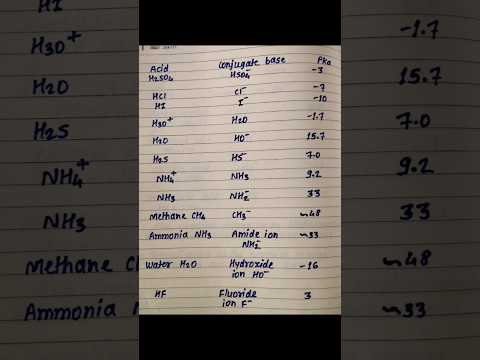 Acid Conjugate base Pka
H2SO4 HSO4⁻ -3
HCl Cl⁻ -7
HI I⁻ -10
H3O⁺ H2O -1.7
H2O HO⁻ 15.7
H2S HS⁻ 7.0
NH4⁺ NH3 9.2
NH3 NH2⁻ 33
Methane CH4 CH3⁻ ~48
Ammonia NH3 Amide ion ~33
NH2⁻
Water H2O Hydroxide -16
ion HO⁻
HF Fluoride 3
ion F⁻
HI
H3O⁺
H2O
H2S
NH4⁺
NH3
Methane C
Ammonia
-1.7
15.7
7.0
9.2
33
~48
~33